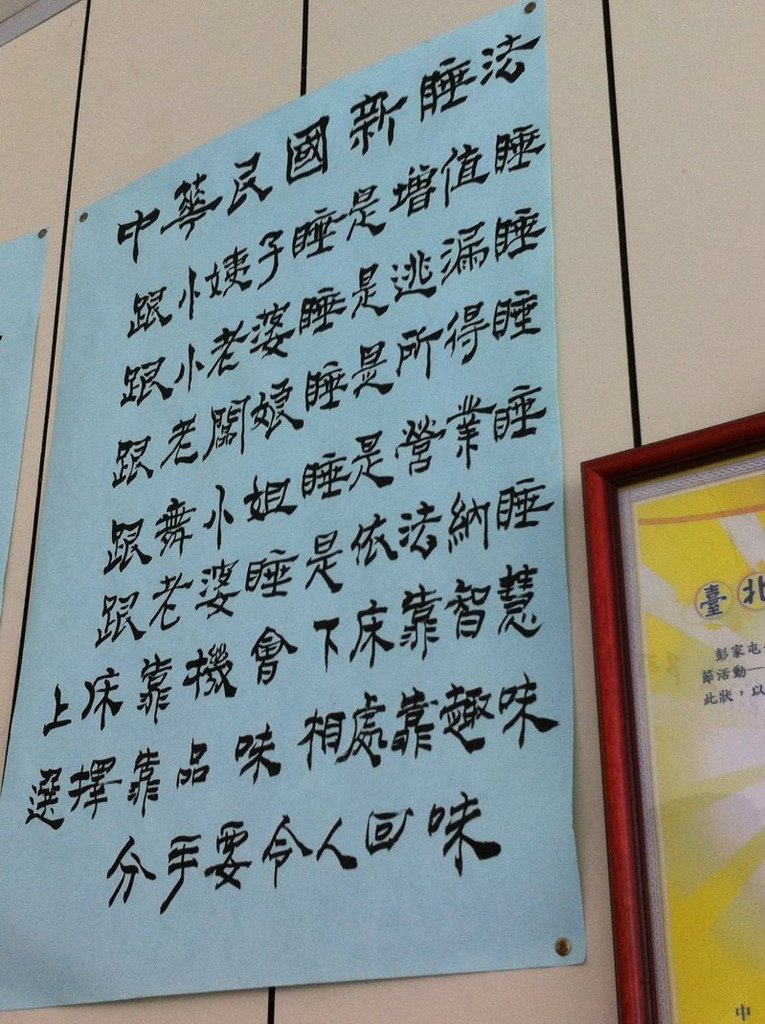 中華民國新睡法
跟小姨子睡是增值睡
跟小老婆睡是逃漏睡
跟老闆娘睡是所得睡
跟舞小姐睡是營業睡
跟老婆睡是依法納睡
上床靠機會 下床靠智慧
選擇靠品味 相處靠趣味
分手要令人回味
臺北
彭家屯
節活動—
此狀，以
中